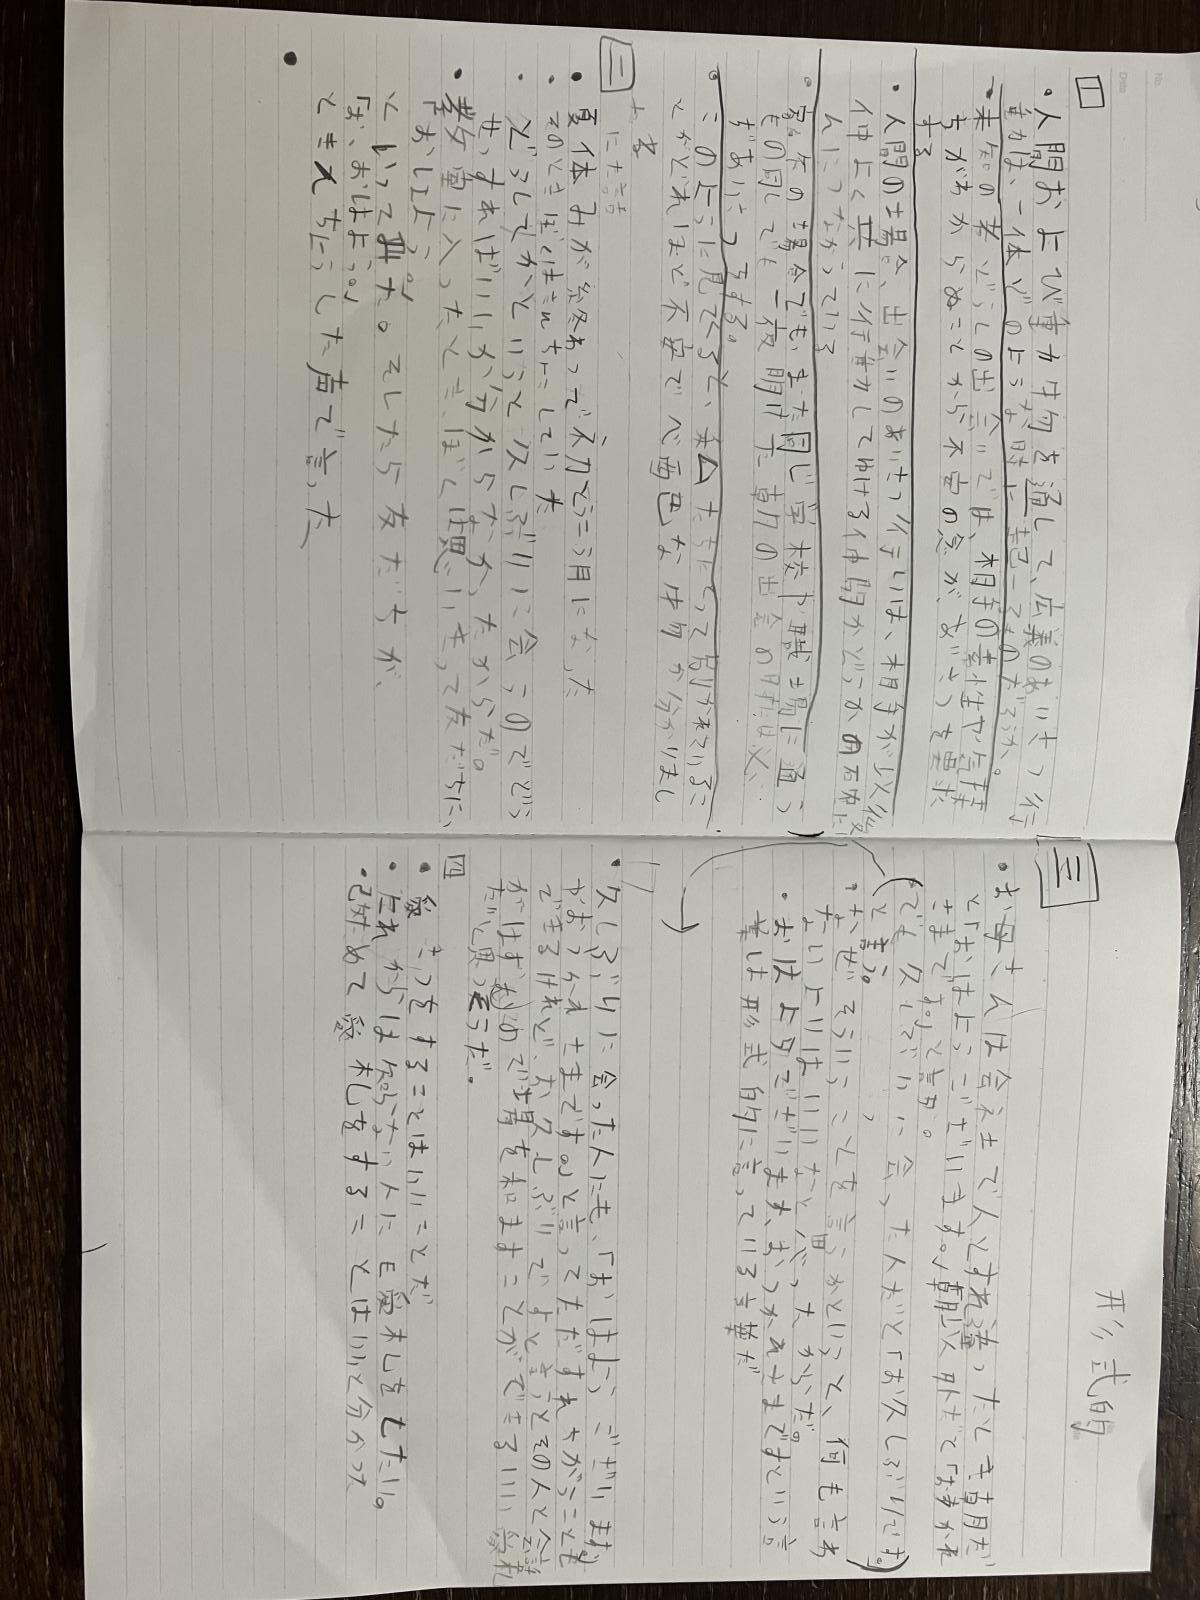 一
・人間および動物を通して、広義のあいさつ行
動は、一体どのような時に起こるものだろうか。
・未知の者どうしの出会いでは、相手の素性や気持
ちがわからぬことから不安の念が、あいさつを要求
する
・人間の場合、出会いのあいさつ行いは、相手が以後
仲よく共に行動してゆける仲間かどうかの
んにつながっている
・家族の場合でも、また同じ学校や職場に通う
もの同しでも一夜明けた朝の出会の時は必
ずあいさつをする。
・このように見てくると、私たちにとって別れているこ
とがどれほど不安でべ面色な生物か分かりまし
た
二
・夏休みが終わって初とうこう日になった
・そのときぼくはきんちょうしていた
・どうしてかというと久しぶりに会うのでどう
せっすればいいか分からなかったからだ。
・教室に入ったとき、ぼくは思いきって友だちに、
「おはよう。」
といって見た。そしたら友だちが、
「お、おはよう。」
ときんちょうした声で言った
形式的
三
・お母さんは会社で人とすれ違ったとき朝だ
と「おはようございます。」朝以外だと「おつかれ
さまです。」と言う。
・でも久しぶりに会った人だと「お久しぶりです。」
と言う。
・なぜそういうことを言うかというと、何も言わ
ないよりはいいなと思ったからだ。
・おはようございます、おつかれさまですという言
葉は形式的に言っている言葉だ
・久しぶりに会った人にも、「おはようございます」
やおつかれさまです。」と言ってただすれちがうことも
できるけれど、お久しぶりですと言うとその人と会話
がはずむので場を和ますことができるいい挨拶
だと思うそうだ。
四
・挨さつをすることはいいことだ
・だれからは知らない人にも挨札をしたい。
・改めて挨札をすることはいいと分かった